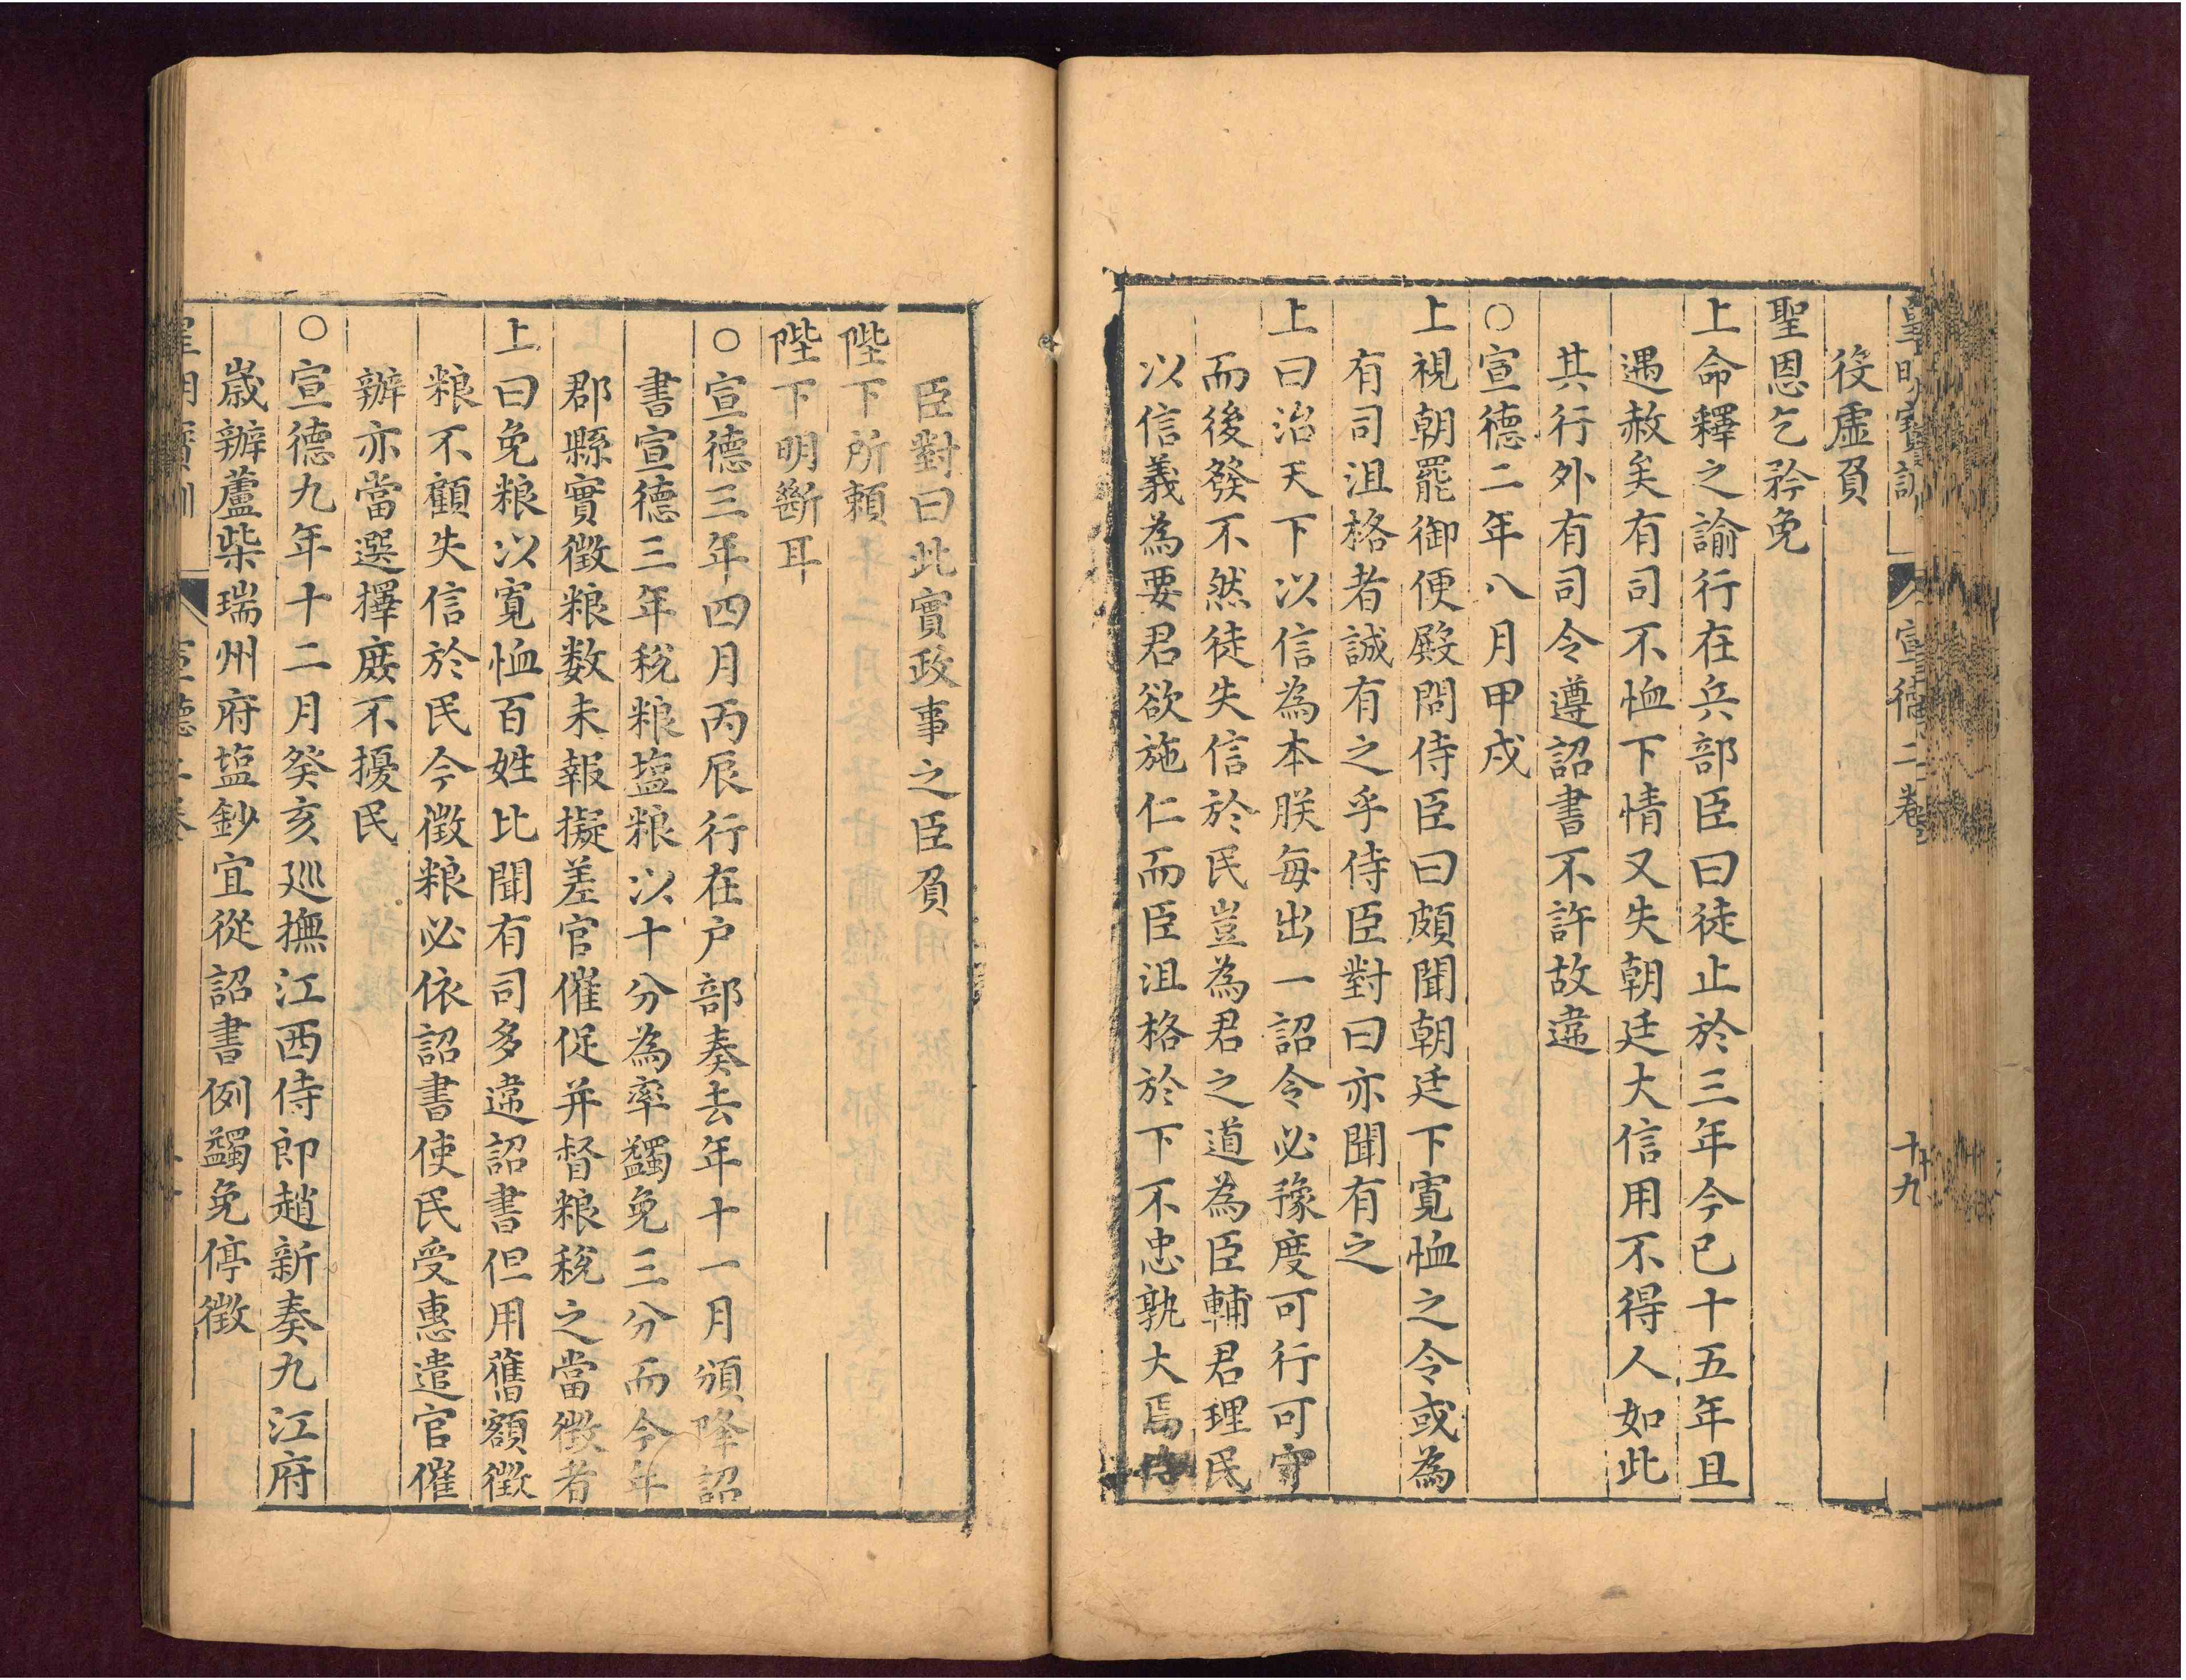 皇明寳訓 宣德二卷 十九
役虛負
聖恩乞矜免
上命釋之諭行在兵部臣曰徒止於三年今已十五年且
遇赦矣有司不恤下情又失朝廷大信用不得人如此
其行外有司令遵詔書不許故違
○宣德二年八月甲戌
上視朝罷御便殿問侍臣曰頗聞朝廷下寛恤之令或為
有司沮格者誠有之乎侍臣對曰亦聞有之
上曰治天下以信為本朕每出一詔令必豫度可行可守
而後發不然徒失信於民豈為君之道為臣輔君理民
以信義為要君欲施仁而臣沮格於下不忠孰大焉侍
臣對曰此實政事之臣負
陛下所頼
陛下明斷耳
○宣德三年四月丙辰行在户部奏去年十一月頒降詔
書宣德三年稅粮塩粮以十分為率蠲免三分而今年
郡縣實徵粮数未報擬差官催促并督粮稅之當徴者
上曰免粮以寛恤百姓比聞有司多違詔書但用舊額徴
粮不顧失信於民今徴粮必依詔書使民受惠遣官催
辦亦當選擇庻不擾民
○宣德九年十二月癸亥廵撫江西侍郎趙新奏九江府
歲辦蘆柴瑞州府塩鈔宜從詔書例蠲免停徴
皇明寳訓 宣德二卷